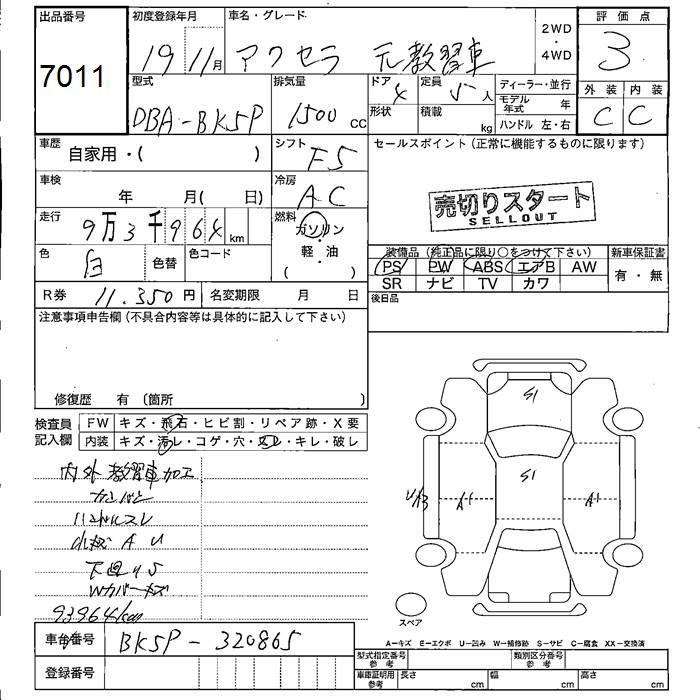 出品番号
7011
初度登録年月
19年11月
車名・グレード
アクセラ 元教習車
2WD
・
4WD
評価点
3
外装 内装
C C
型式
DBA-BK5P
排気量
1500 cc
ドア 4
形状
定員 5人
積載 kg
ディーラー・並行
モデル年式 年
ハンドル 左・右
車歴
自家用・( )
シフト
F5
セールスポイント (正常に機能するものに限ります)
売切りスタート
SELLOUT
車検
年 月( 日)
冷房
AC
走行
9万3千964km
燃料
ガソリン
・
軽・油
( )
色
白
色替
色コード
装備品 (純正品に限り○をつけて下さい)
新車保証書
PS PW ABS エアB AW
SR ナビ TV カワ
有・無
R券 11.350円
名変期限 月 日
後日品
注意事項申告欄 (不具合内容等は具体的に記入して下さい)
修復歴 有 (箇所
検査員記入欄
FW キズ・飛石・ヒビ割・リペア跡・X要
内装 キズ・汚レ・コゲ・穴・スレ・キレ・破レ
内外教習車加工
ハンドルスレ
AU
下廻りS
Wカバーキズ
93964km
S1
S1
A1
A1
スペア
A－キズ E－エクボ U－凹み W－補修跡 S－サビ C－腐食 XX－交換済
車台番号
BK5P-320865
登録番号
型式指定番号 参考
類別区分番号 参考
車庫証明用 参考
長さ cm
幅 cm
高さ cm